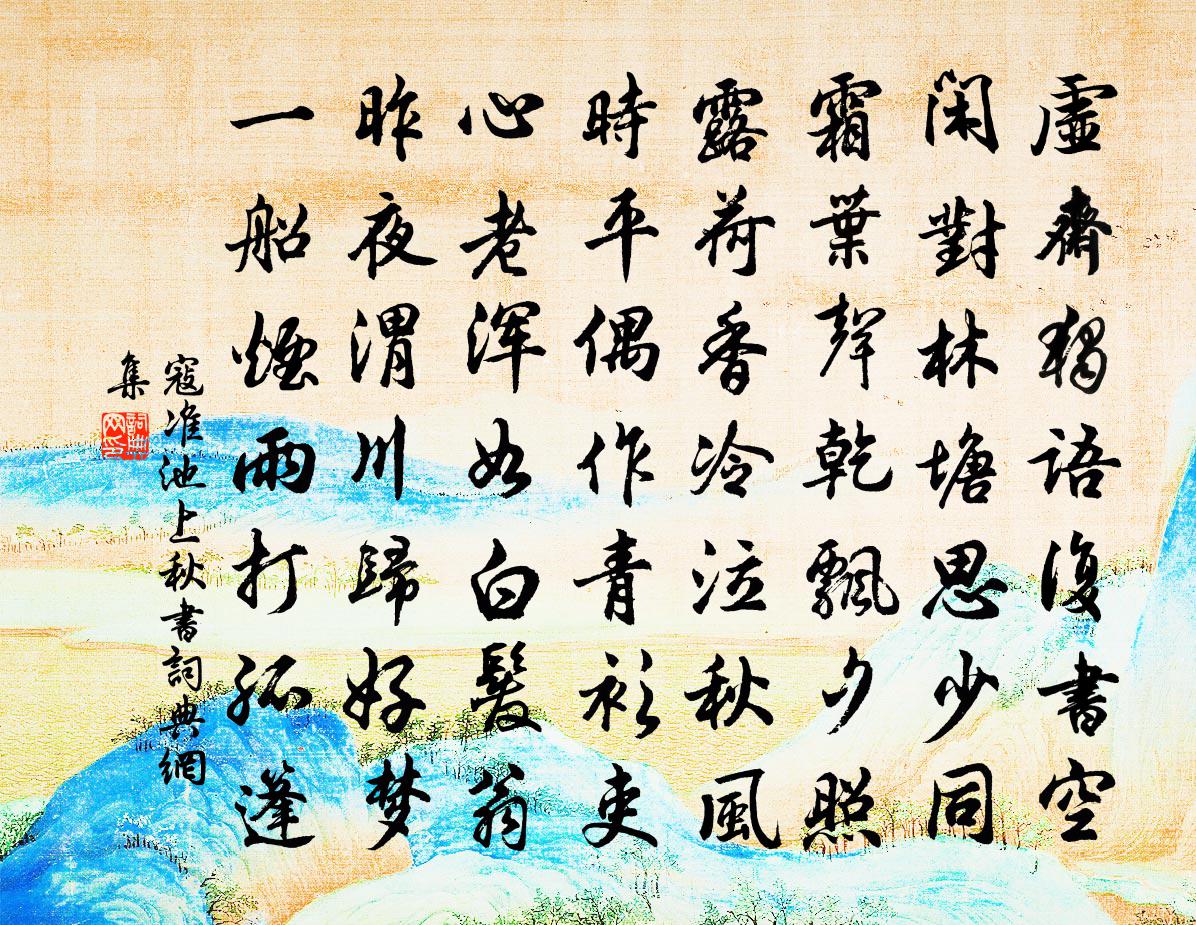 虛齋獨語復書空
閑對林塘思少同
霜葉聲乾飄夕照
露荷香冷泣秋風
時平偶作青衫吏
心老渾如白髮翁
昨夜渭川歸好梦
一船煙雨打孤蓬
寇准池上秋書詞典網
集
詞典網印